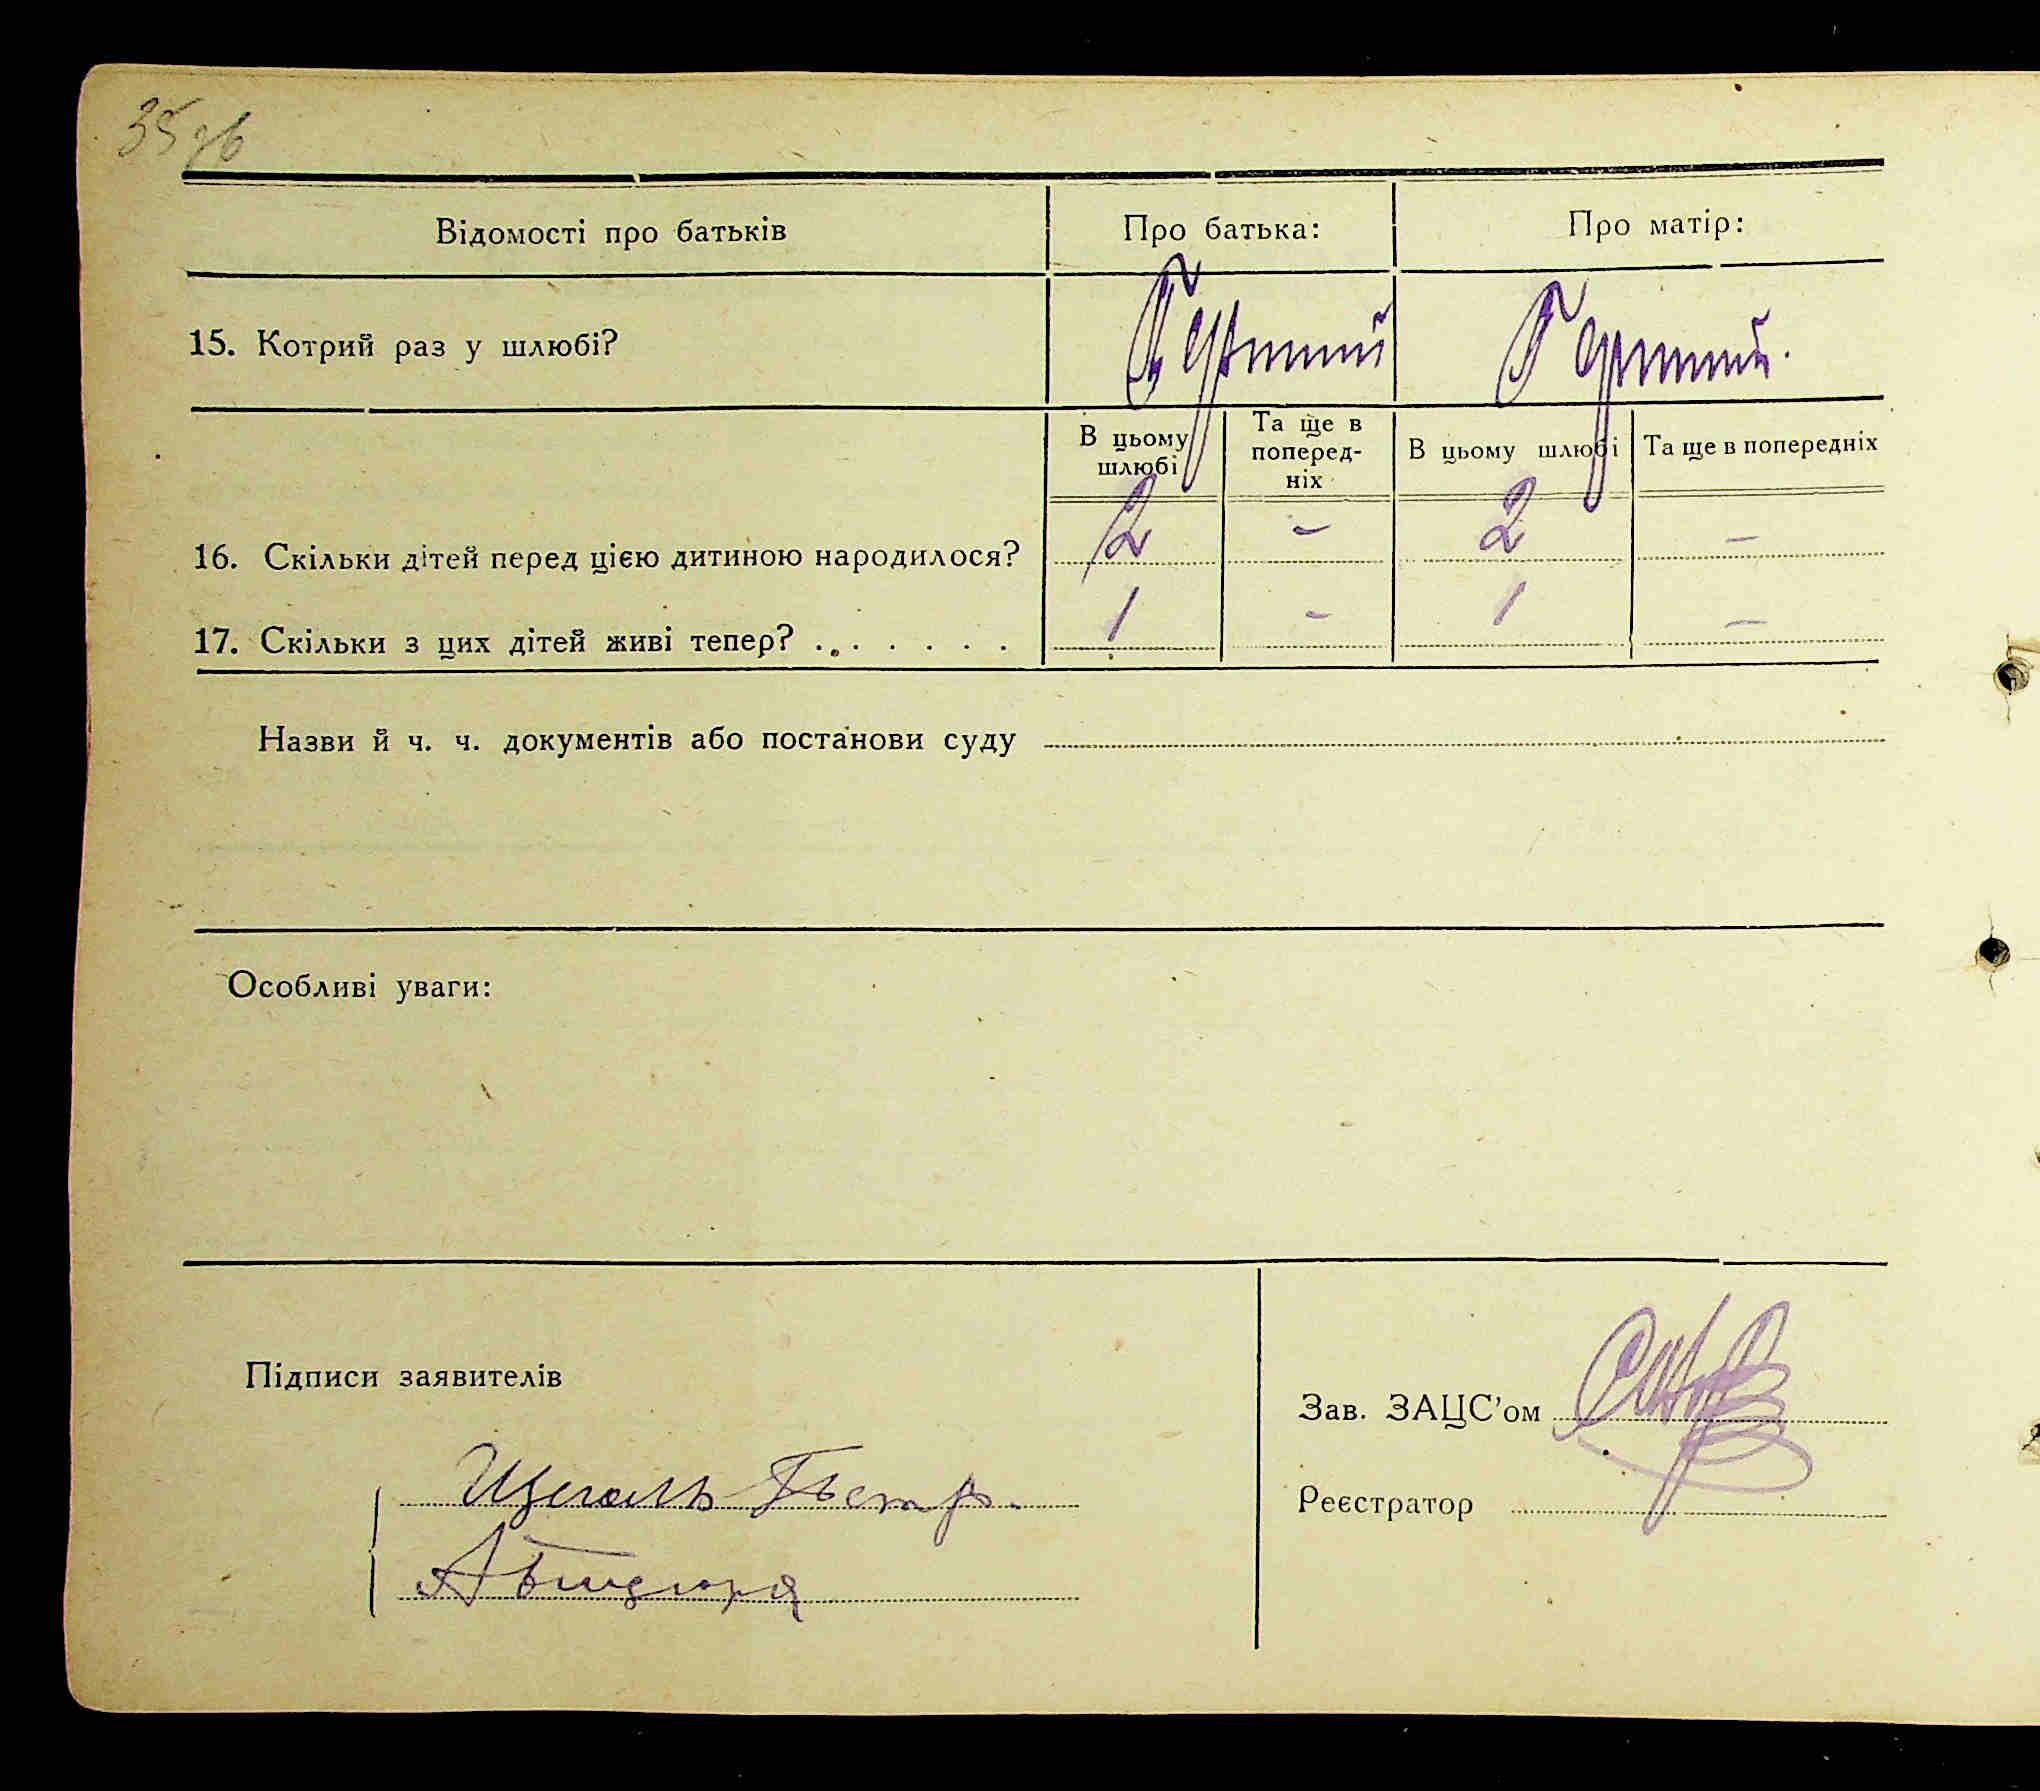 35 зв
Відомості про батьків
Про батька:
Про матір:
15. Котрий раз у шлюбі?
Первший
Первший.
В цьому шлюбі
Та ще в поперед-
ніх
В цьому шлюбі
Та ще в попередніх
16. Скільки дітей перед цією дитиною народилося?
2
-
2
-
17. Скільки з цих дітей живі тепер? . . . . . . .
1
-
1
-
Назви й ч. ч. документів або постанови суду
Особливі уваги:
Підписи заявителів
Щеголь
Зав. ЗАЦС’ом
Реєстратор